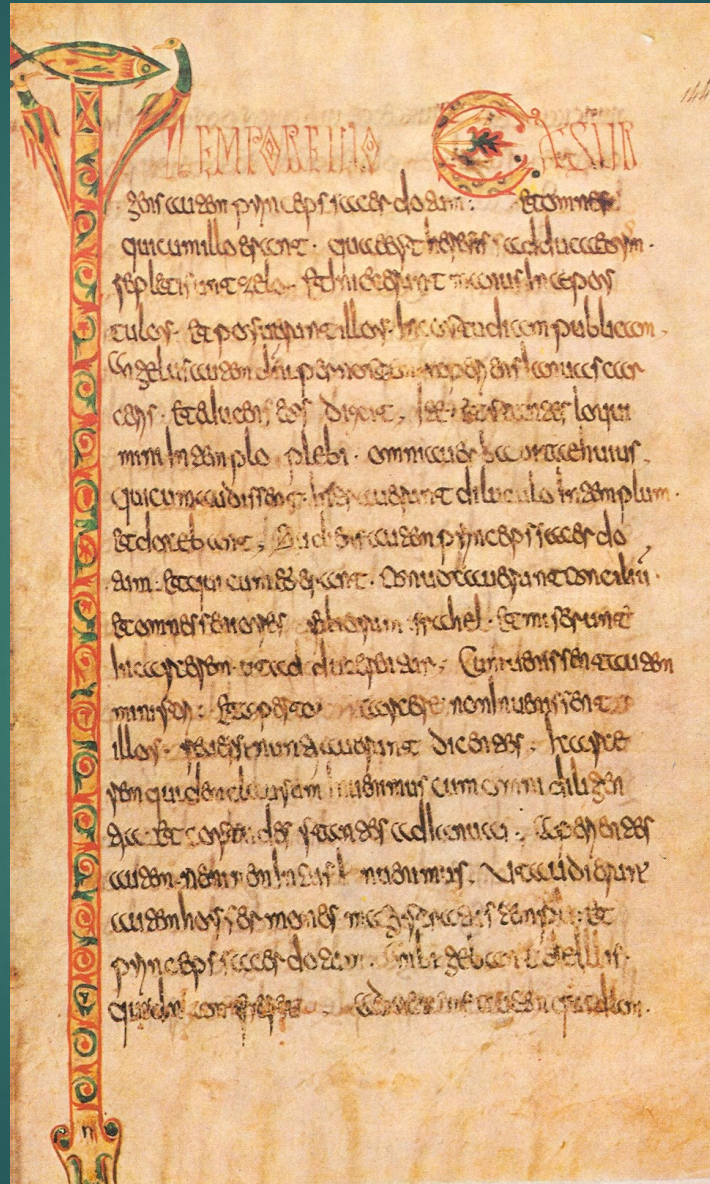 IN TEMPORE ILLO EXSUR
gens autem princeps sacerdotum: et omnes
qui cum illo erant. quae est heresis sadducaeorum.
repleti sunt zelo. et iniecerunt manus in apos
tulos. et posuerunt illos in custudiam publicam.
Angelus autem dni per noctem aperiens ianuas car
ceris. et educens eos dixit. Ite et stantes loqui
mini in templo plebi. omnia verba vitae huius.
qui cum audissent. intraverunt diluculo in templum.
et docebant. Audiens autem princeps sacerdo
tum. et qui cum eo erant. convocaverunt conciliū.
et omnes seniores filiorum israhel. et miserunt
in carcerem. ut adducerentur. Cum venissent autem
ministri: et aperto carcere non invenissent
illos. reversi nunciaverunt dicentes. carce
rem quidem clausum invenimus cum omni diligen
tia. et custodes stantes ad ianuas. Aperientes
autem neminem intus invenimus. Ut audierunt
autem hos sermones magistratus templi. et
princeps sacerdotum. ambigebant de illis.
quidnam fieret. Adveniens autem quidam.
144